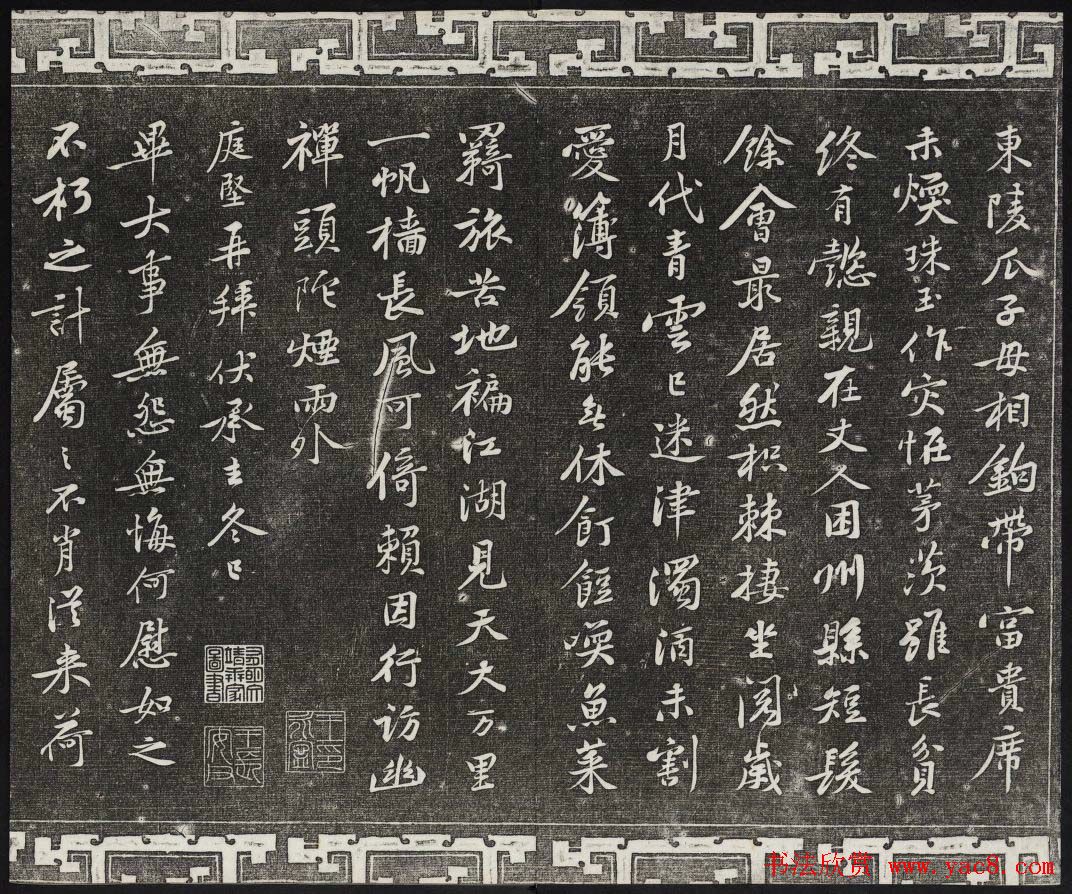 東陵瓜子母相鉤帶富貴席
未煖珠玉作災惟茅茨雖長貧
終有懿親在丈人困州縣短髮
餘會最居然枳棘棲坐閱歲
月代青雲已迷津濁酒未割
愛簿領能無休飣餖喚魚菜
羇旅苦地褊江湖見天大万里
一帆檣長風可倚賴因行訪幽
禪頭陀煙雨外
庭堅再拜伏承去冬已
畢大事無怨無悔何慰如之
不朽之計屬〻不肖從来荷
书法欣赏 www.yac8.com